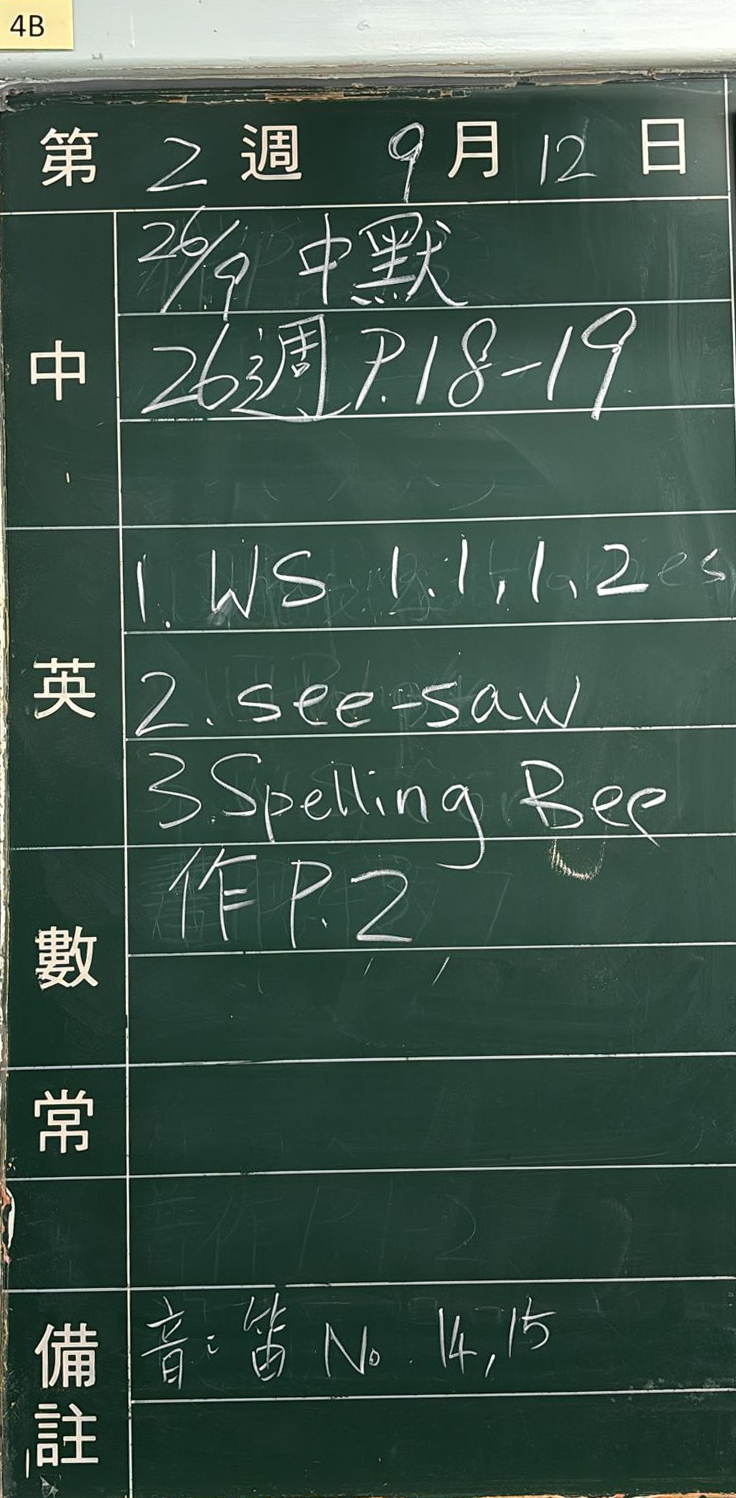 4B
第 2 週 9 月 12 日
中
26/9 中默
26週 P.18-19
英
1. WS 1.1, 1.2
2. see-saw
3. Spelling Bee
數
作 P.2
常
備註
音: 笛 No. 14, 15